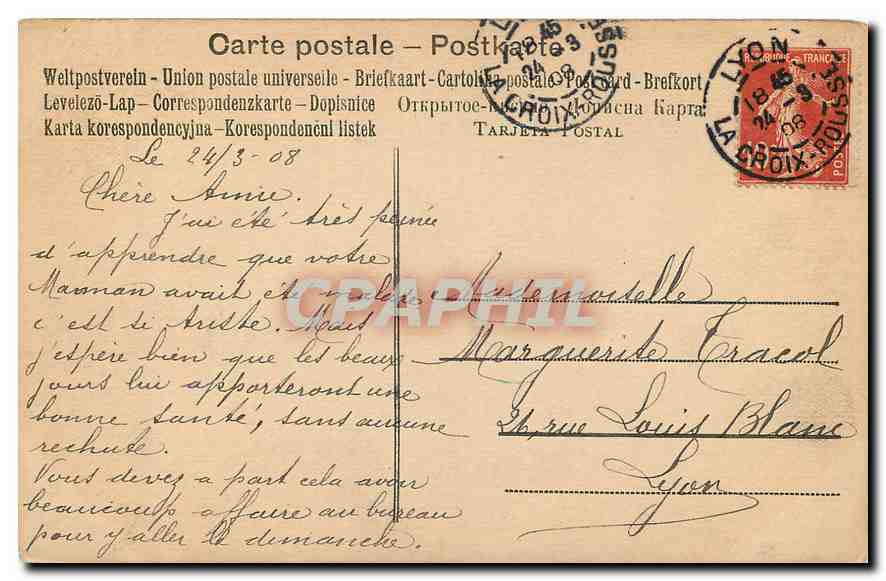 Carte postale – Postkarte
Weltpostverein - Union postale universelle - Briefkaart - Cartolina postale - Postcard - Brefkort
Levelezö-Lap - Correspondenzkarte - Dopisnice Открытое Дописна Карта
Karta korespondencyjna - Korespondenčni listek TARJETA POSTAL
Le 24/3-08
Chère Amie.
J'ai été très peinée
d'apprendre que votre
Maman avait été malade
c'est si triste. Mais
j'espère bien que les beaux
jours lui apporteront une
bonne santé, sans aucune
rechute.
Vous devez a part cela avoir
beaucoup affaire au bureau
pour y aller le dimanche.
Mademoiselle
Marguerite Tracol
26, rue Louis Blanc
Lyon
LYON
18 45
24 - 3
08
LA CROIX-ROUSSE
18 45
24 - 3
08
LA CROIX-ROUSSE
REPUBLIQUE FRANÇAISE
POSTES
CPAPHIL